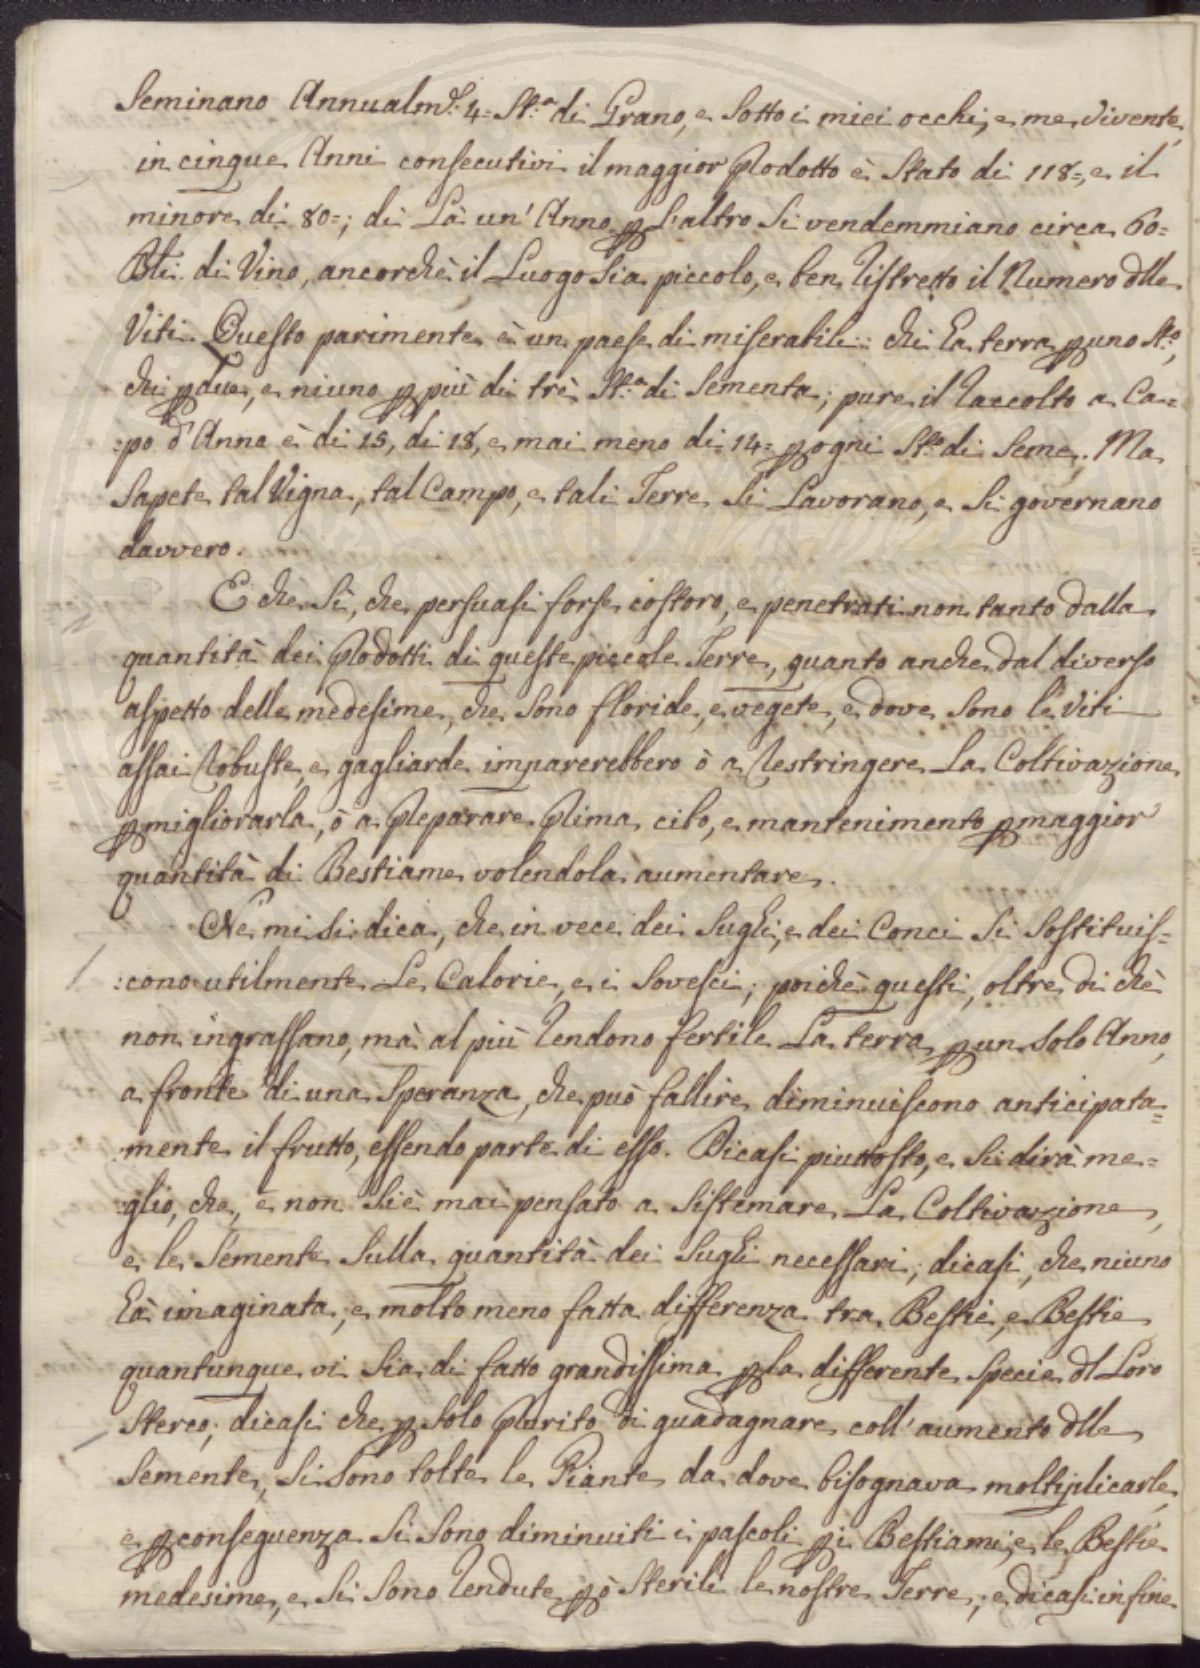 Seminano Annualm.e 4= St.a di Grano, e sotto i miei occhi, e me vivente,
in cinque Anni consecutivi il maggior Prodotto è stato di 118=, e il
minore di 80=; di Là un' Anno p l'altro si vendemmiano circa 60=
Bti. di Vino, ancorchè il Luogo sia piccolo, e ben ristretto il Numero dlle
Viti. Questo parimente è un paese di miserabili: chi ha terra p uno St.o,
chi p due, e niuno p più di trè St.a di Sementa; pure il raccolto a Ca=
:po d'Anno è di 15, di 18, e mai meno di 14= p ogni St.o di Seme. Ma
sapete tal Vigna, tal Campo, e tali Terre si Lavorano, e si governano
davvero.
E chè sì, che persuasi forse costoro, e penetrati non tanto dalla
quantità dei Prodotti di queste piccole Terre, quanto anche dal diverso
aspetto delle medesime, che sono floride, e vegete, e dove sono le Viti
assai robuste, e gagliarde imparerebbero ò a restringere La Coltivazione
p migliorarla, ò a Preparare Prima cibo, e mantenimento p maggior
quantità di Bestiame volendola aumentare.
Nè mi si dica, che in vece dei Sughi, e dei Conci si sostituis=
:cono utilmente Le Calorie, e i Sovesci; poichè questi, oltre di chè
non ingrassano, mà al più rendono fertile La terra p un solo Anno,
a fronte di una Speranza, che può fallire diminuiscono anticipata=
mente il frutto, essendo parte di esso. Dicasi piuttosto, e si dirà me=
:glio, che, e non si è mai pensato a sistemare La Coltivazione,
e le Semente sulla quantità dei Sughi necessari; dicasi, che niuno
hà imaginata, e molto meno fatta differenza tra Bestie, e Bestie
quantunque vi sia di fatto grandissima p la differente specie dl Loro
Sterco; dicasi che p solo Prurito di guadagnare coll'aumento dlle
Semente, si sono tolte le Piante da dove bisognava moltiplicarle,
e p conseguenza si sono diminuiti i pascoli p i Bestiami, e le Bestie
medesime, e si sono rendute p ò sterili le nostre Terre; e dicasi in fine